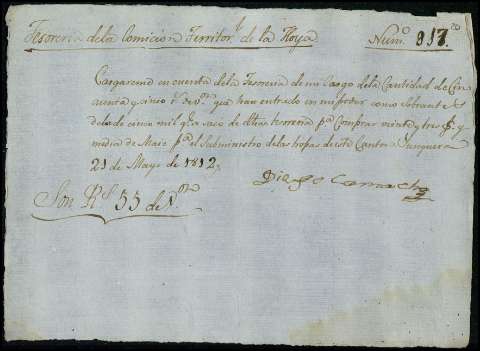 Tesoreria de la Comicion Territor.l de la Hoya Num.o 917.
Cargareme en cuenta de la Tesoreria de mi Cargo de la Cantidad de Cin
cuenta y cinco r.s de v.on que han entrado en mi poder como Sobrante
de los de cinco mil q.e saco de Alta tesoreria p.a Compras veinte y tres y
media de p.a el Subministro de las tropas de este Canton Junquera
21 de Mayo de 1812.
Diego Camacho
Son R.s 55 de V.on